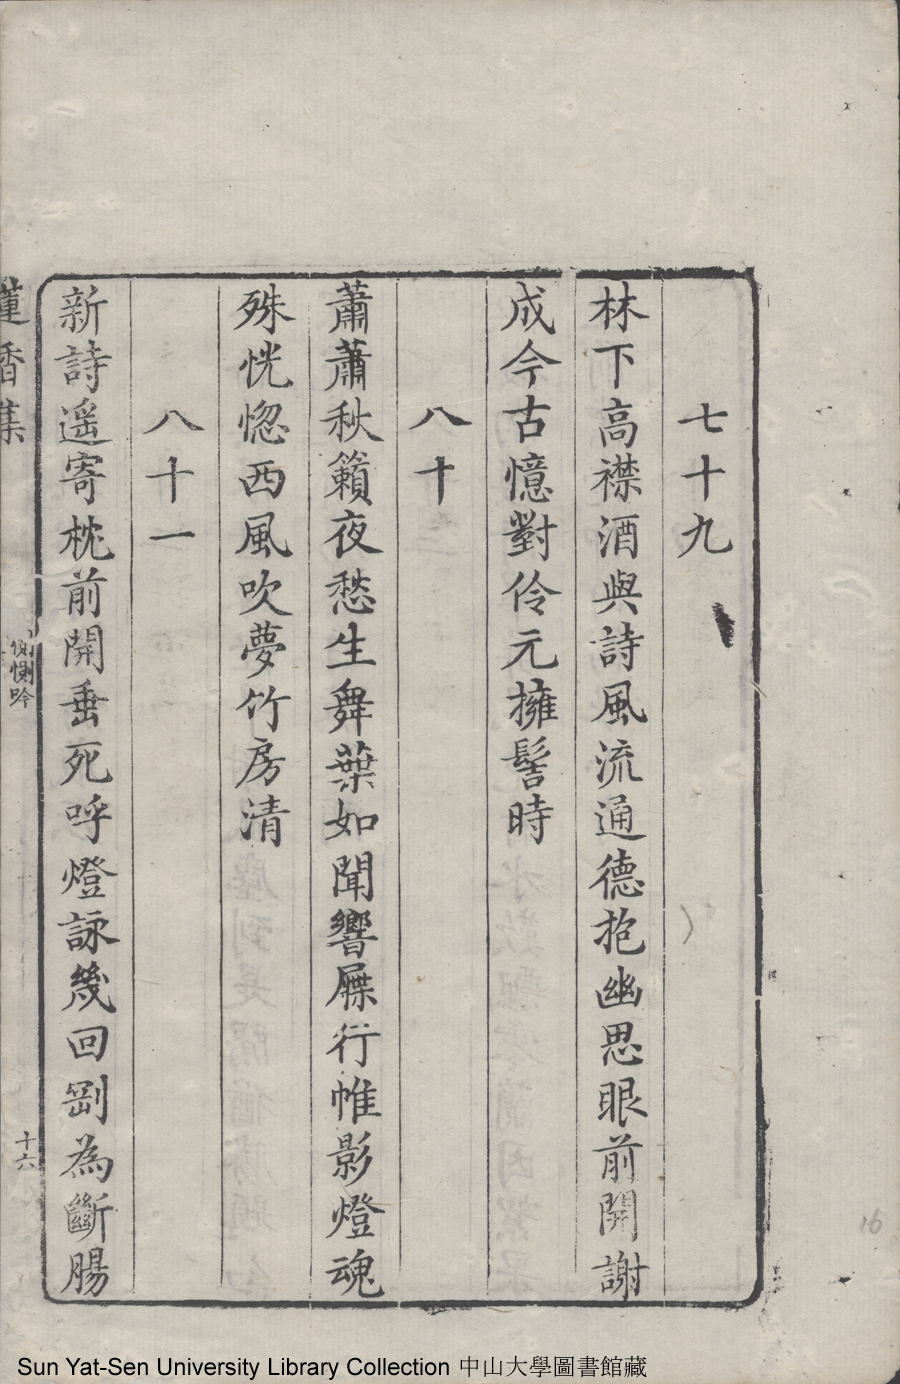 七十九
林下高襟酒與詩風流通德抱幽思眼前開謝
成今古憶對伶元擁髻時
八十
蕭蕭秋籟夜愁生舞葉如聞響屧行帷影燈魂
殊恍惚西風吹夢竹房清
八十一
新詩遥寄枕前開垂死呼燈詠幾回劄為斷腸
蓮香集
惻惻吟
十六
16
Sun Yat-Sen University Library Collection 中山大學圖書館藏